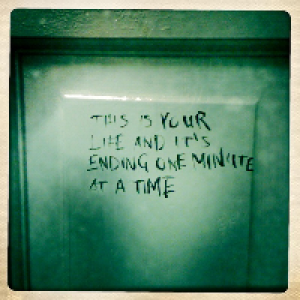 THIS IS YOUR
LIFE AND IT'S
ENDING ONE MINUTE
AT A TIME